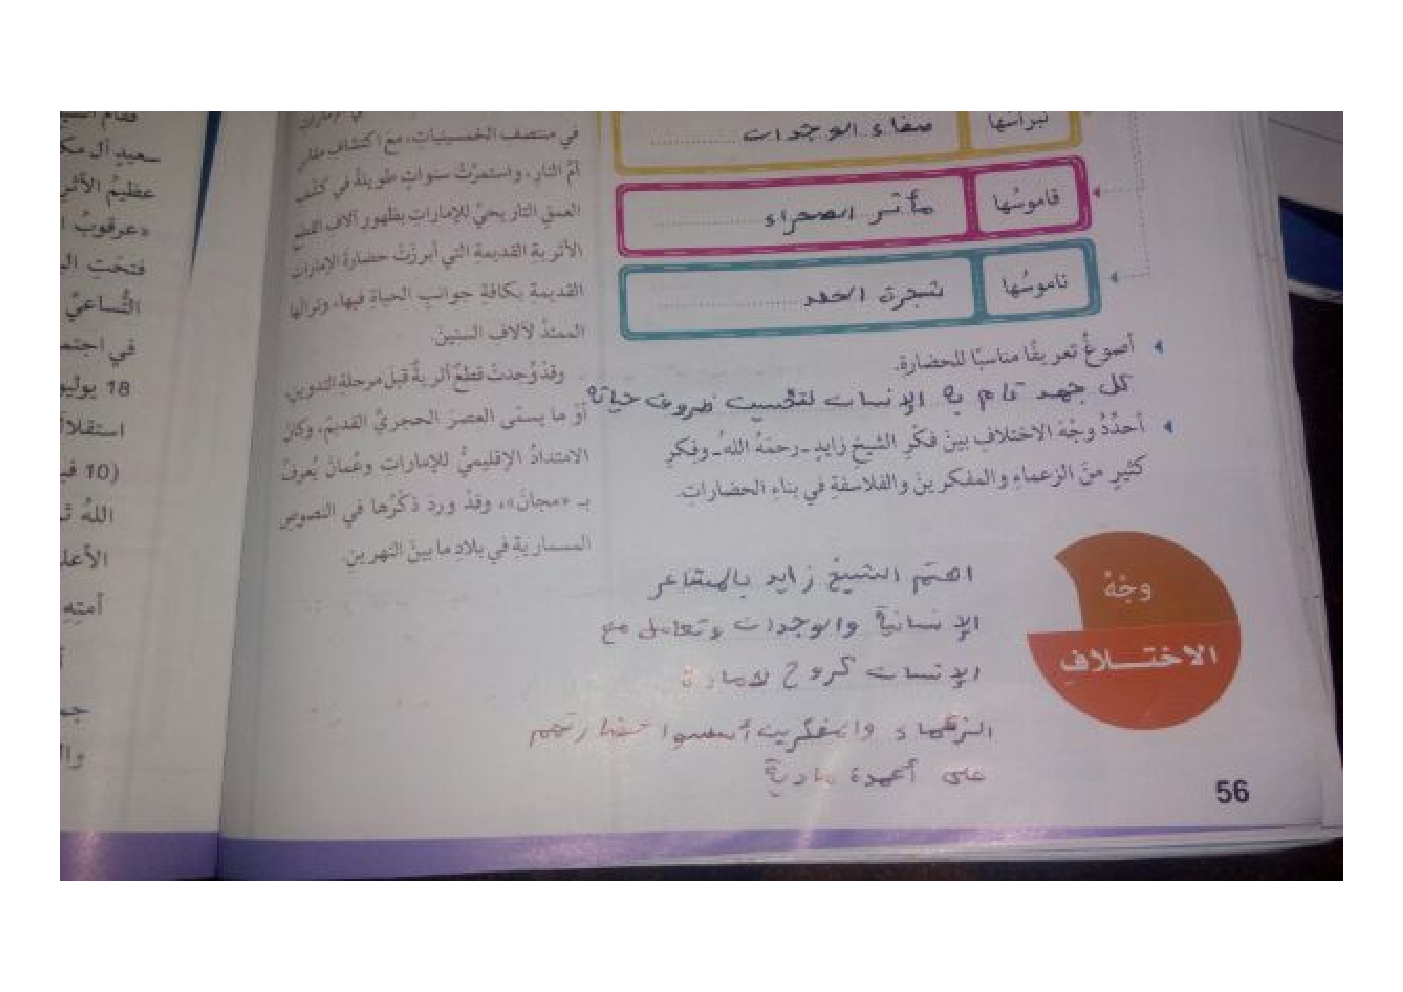 نبراسها
صفاء الوجدان
قاموسُها
مآثر الصحراء
ناموسُها
شجرة
أصوغُ تعريفًا مناسبًا للحضارة.
كل جهد قام به الإنسان لتحسين ظروف حياته
أحدِّدُ وجْهَ الاختلافِ بينَ فكْرِ الشيخِ زايدٍ ـ رحمَهُ اللهُ ـ وفِكرِ
كثيرٍ منَ الزعماءِ والمفكرينَ والفلاسفةِ في بناءِ الحضاراتِ.
وجْهُ
الاختـــلافِ
اهتم الشيخ زايد بالمشاعر
الإنسانية والوجدان وتعامل مع
الإنسان كروح لا مادة
الزعماء والمفكرين أسسوا حضارتهم
على أعمدة مادية
في منتصف الخمسينيات، معَ اكتشاف مقابر
أمِّ النار، واستمرَّتْ سنواتٍ طويلةً في كشْفِ
العمقِ التاريخيِّ للإماراتِ بظهورِ آلافِ القطعِ
الأثريةِ القديمةِ التي أبرزَتْ حضارةَ الإماراتِ
القديمةِ بكافةِ جوانبِ الحياةِ فيها، وتراثِها
الممتدِّ لآلافِ السنينَ.
وقدْ وُجدتْ قطعٌ أثريةٌ قبلَ مرحلةِ التدوينِ،
أوْ ما يسمَّى العصرَ الحجريَّ القديمَ، وكانَ
الامتدادُ الإقليميُّ للإماراتِ وعُمانَ يُعرفُ
بـ «مجانَ»، وقدْ وردَ ذكْرُها في النصوصِ
المسماريةِ في بلادِ ما بينَ النهرينِ.
56
سعيدٍ آل
عظيمُ
«عرقوبُ
فتحَت
في
18 يوليو
(10
اللهُ
أمتِهِ